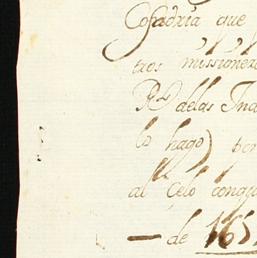 Cofadria que
tros missionero
Rl delas Ind
lo hago) per
al Celo conq
— de 165